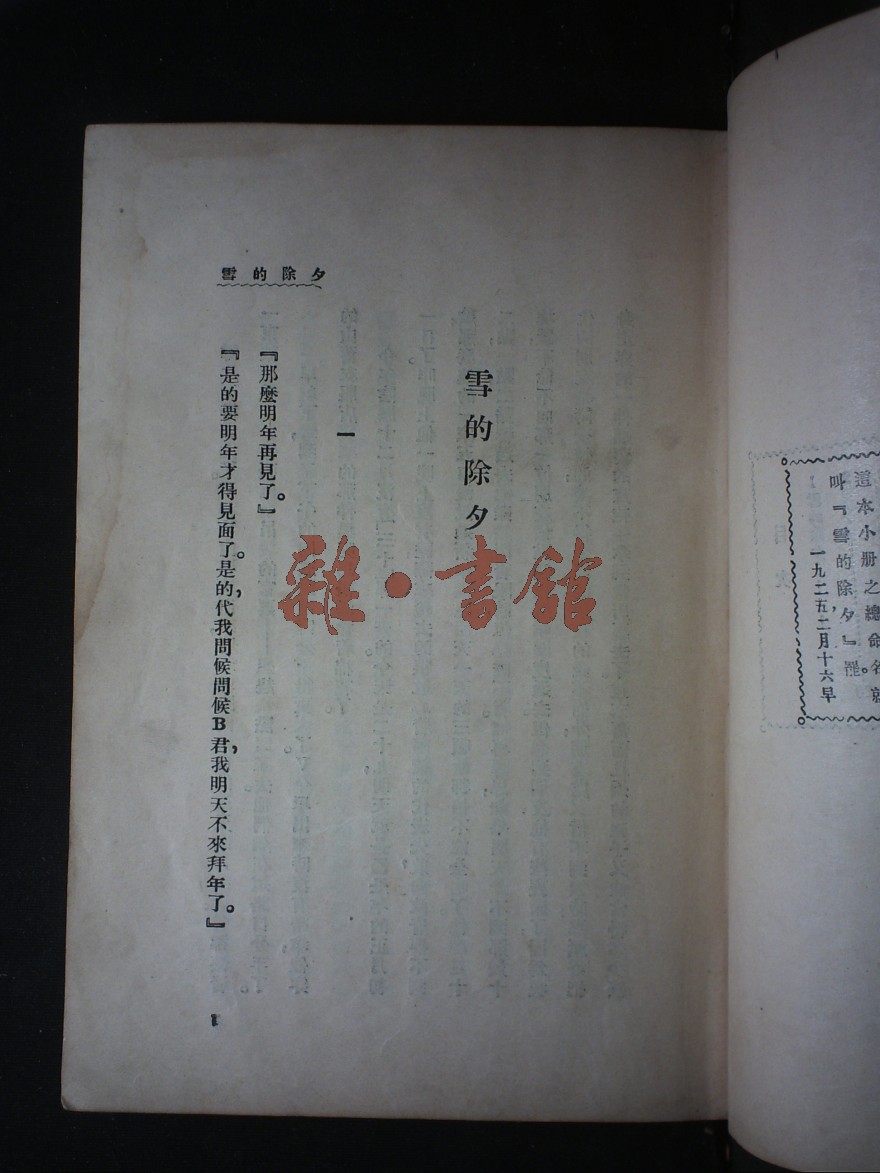 這本小册之總命名就
叫『雪的除夕』罷。
一九二五二月十六早
雪的除夕
雪的除夕
一
『那麼明年再見了。』
『是的要明年才得見面了。是的，代我問候問候B君，我明天不來拜年了。』
1
雜·書館